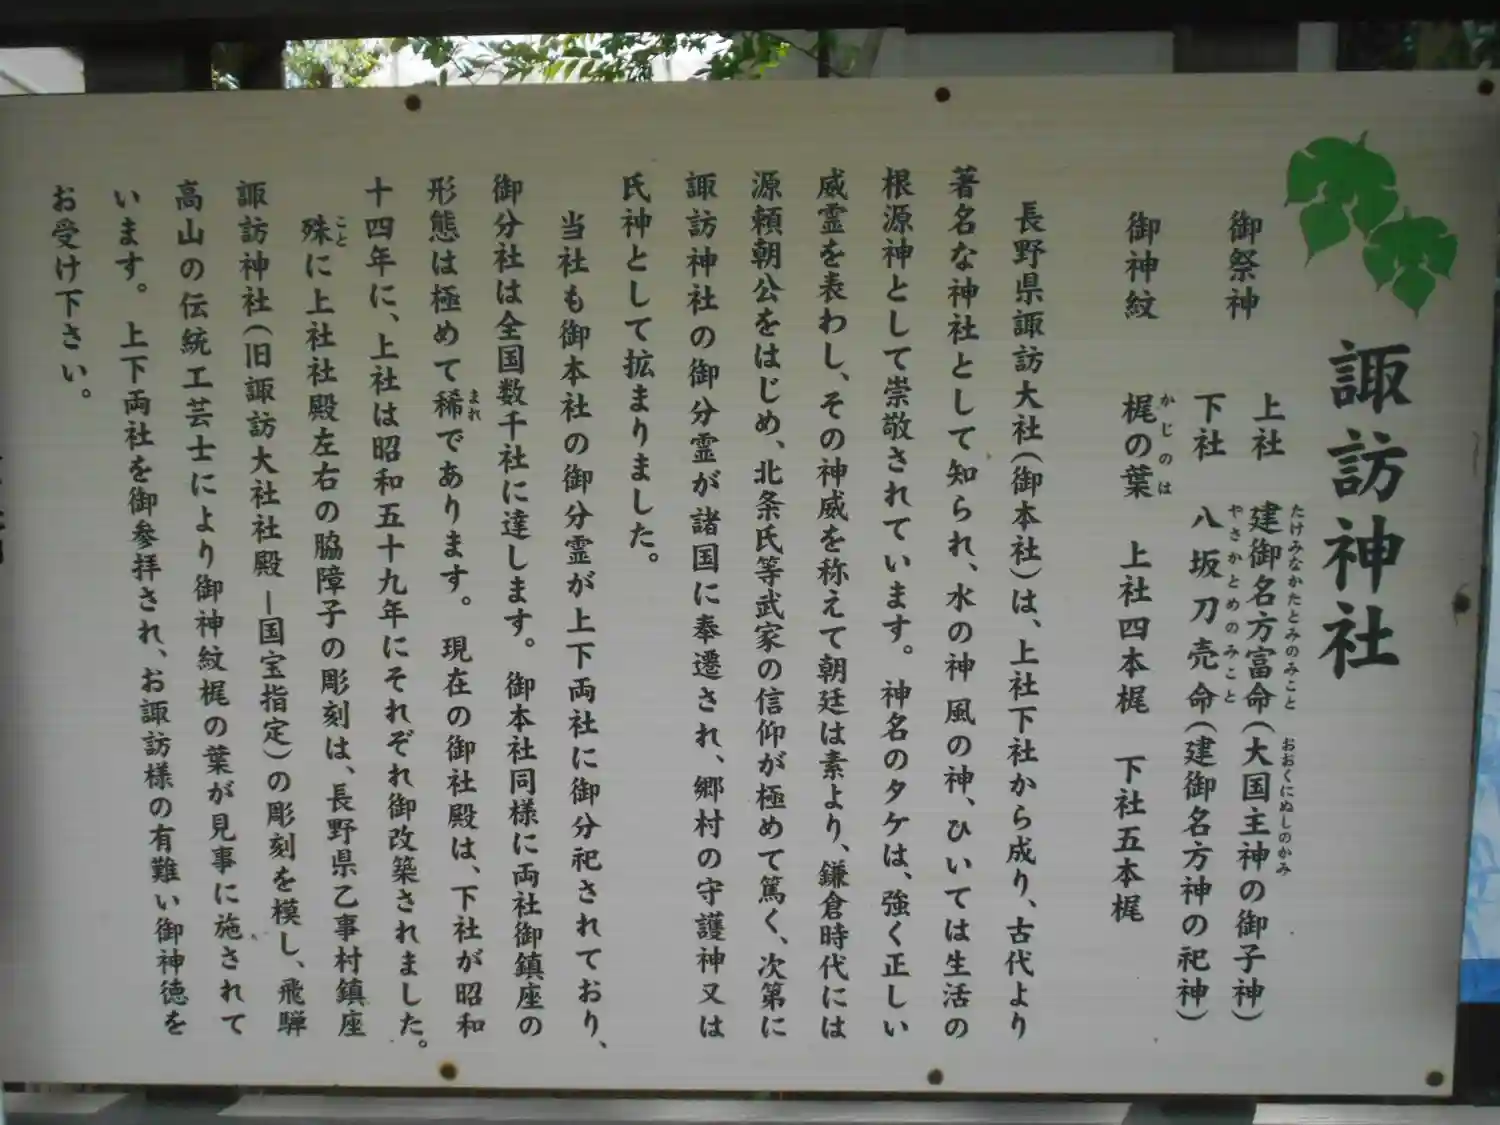 諏訪神社
御祭神　上社　建御名方富命（大国主神の御子神）
たけみなかたとみのみこと
おおくにぬしのかみ
下社　八坂刀売命（建御名方神の祀神）
やさかとめのみこと
御神紋　梶の葉　上社四本梶　下社五本梶
かじのは
長野県諏訪大社（御本社）は、上社下社から成り、古代より
著名な神社として知られ、水の神風の神、ひいては生活の
根源神として崇敬されています。神名のタケは、強く正しい
威霊を表わし、その神威を称えて朝廷は素より、鎌倉時代には
源頼朝公をはじめ、北条氏等武家の信仰が極めて篤く、次第に
諏訪神社の御分霊が諸国に奉遷され、郷村の守護神又は
氏神として拡まりました。
当社も御本社の御分霊が上下両社に御分祀されており、
御分社は全国数千社に達します。御本社同様に両社御鎮座の
形態は極めて稀であります。現在の御社殿は、下社が昭和
まれ
十四年に、上社は昭和五十九年にそれぞれ御改築されました。
殊に上社社殿左右の脇障子の彫刻は、長野県乙事村鎮座
こと
諏訪神社（旧諏訪大社社殿―国宝指定）の彫刻を模し、飛騨
高山の伝統工芸士により御神紋梶の葉が見事に施されて
います。上下両社を御参拝され、お諏訪様の有難い御神徳を
お受け下さい。